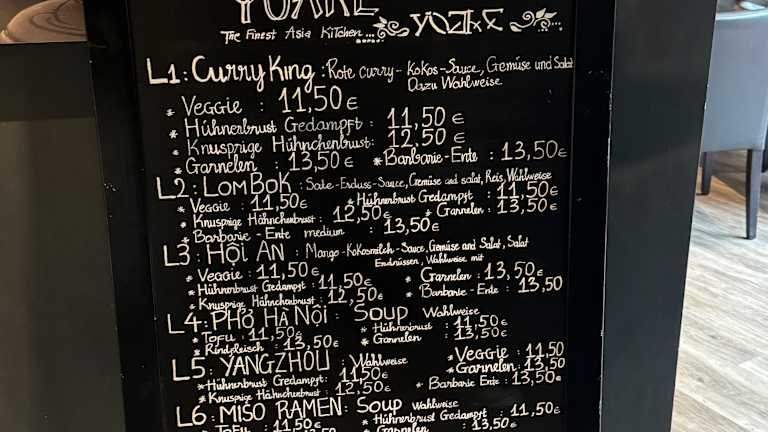 The Finest Asia Kitchen....
L1: Curry King : Rote curry - Kokos-Sauce, Gemüse und Salat
Dazu Wahlweise
* Veggie : 11,50€
* Hühnerbrust Gedampft : 11,50€
* Knusprige Hühnchenbrust: 12,50€
* Garnelen : 13,50€ * Barbarie-Ente : 13,50€
L2: LomBoK : Sate-Erdnuss-Sauce, Gemüse and salat, Reis, Wahlweise
* Veggie : 11,50€ * Hühnerbrust Gedampft : 11,50€
* Knusprige Hähnchenbrust : 12,50€ * Garnelen : 13,50€
* Barbarie-Ente medium : 13,50€
L3: HỘI AN : Mango-Kokosmilch-Sauce, Gemüse and Salat, Salat
Erdnüssen, Wahlweise mit
* Veggie : 11,50€ * Garnelen : 13,50€
* Hühnerbrust Gedampft : 11,50€
* Knusprige Hähnchenbrust : 12,50€ * Barbarie-Ente : 13,50
L4: PHỞ HÀ NỘI : Soup Wahlweise
* Tofu : 11,50€ * Hühnerbrust : 11,50€
* Rindfleisch : 13,50€ * Garnelen : 13,50€
L5: YANGZHOU : Wahlweise * Veggie : 11,50
* Hühnerbrust Gedampft: 11,50€ * Garnelen : 13,50
* Knusprige Hähnchenbrust : 12,50€ * Barbarie Ente : 13,50€
L6: MISO RAMEN: Soup Wahlweise
* Tofu : 11,50€ * Hühnerbrust Gedampft : 11,50€
* Garnelen : 13,50€